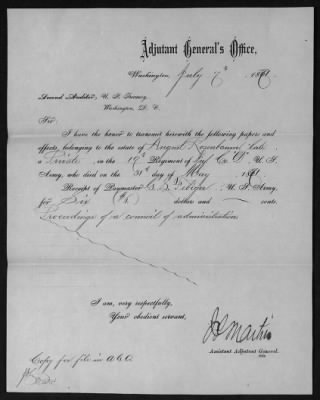 Adjutant General's Office,
Washington, July 7th
Second Auditor, U. S. Treasury,
Washington, D. C.
Sir:
I have the honor to transmit herewith the following papers and
effects, belonging to the estate of August Rosenbaum late
a Private, in the Regiment of Inf. Co. U. S.
Army, who died on the 31st day of May
Receipt of Paymaster U. S. Army,
for Six dollars and cents.
Proceedings of a council of administration.
I am, very respectfully,
Your obedient servant,
Martin
Assistant Adjutant General.
Copy for file in A.G.O.